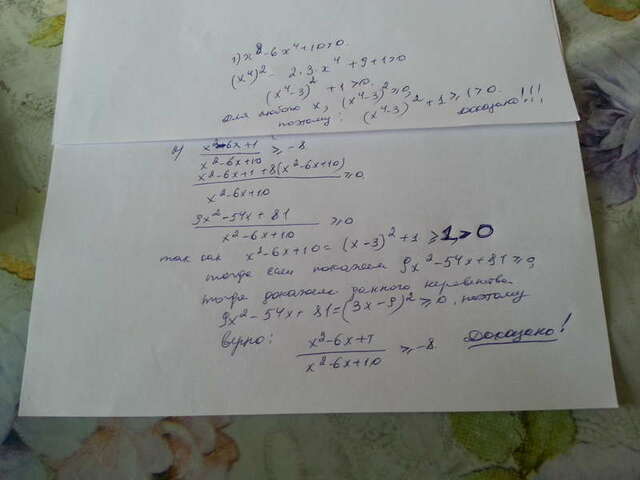 1) x⁸-6x⁴+10>0.
(x⁴)² - 2·3·x⁴ + 9+1>0
(x⁴-3)² +1>0.
для любого x, (x⁴-3)² ≥0,
поэтому: (x⁴-3)² +1 ≥ 1>0. Доказано!!!
x²-6x+1 / x²-6x+10 ≥ -8
x²-6x+1+8(x²-6x+10) / x²-6x+10 ≥0
9x²-54x+81 / x²-6x+10 ≥0
так как x²-6x+10 = (x-3)²+1 ≥ 1>0
тогда если покажем 9x²-54x+81 ≥0,
тогда докажем данного неравенства
9x²-54x+81=(3x-9)² ≥0, поэтому
верно: x²-6x+1 / x²-6x+10 ≥ -8 Доказано!